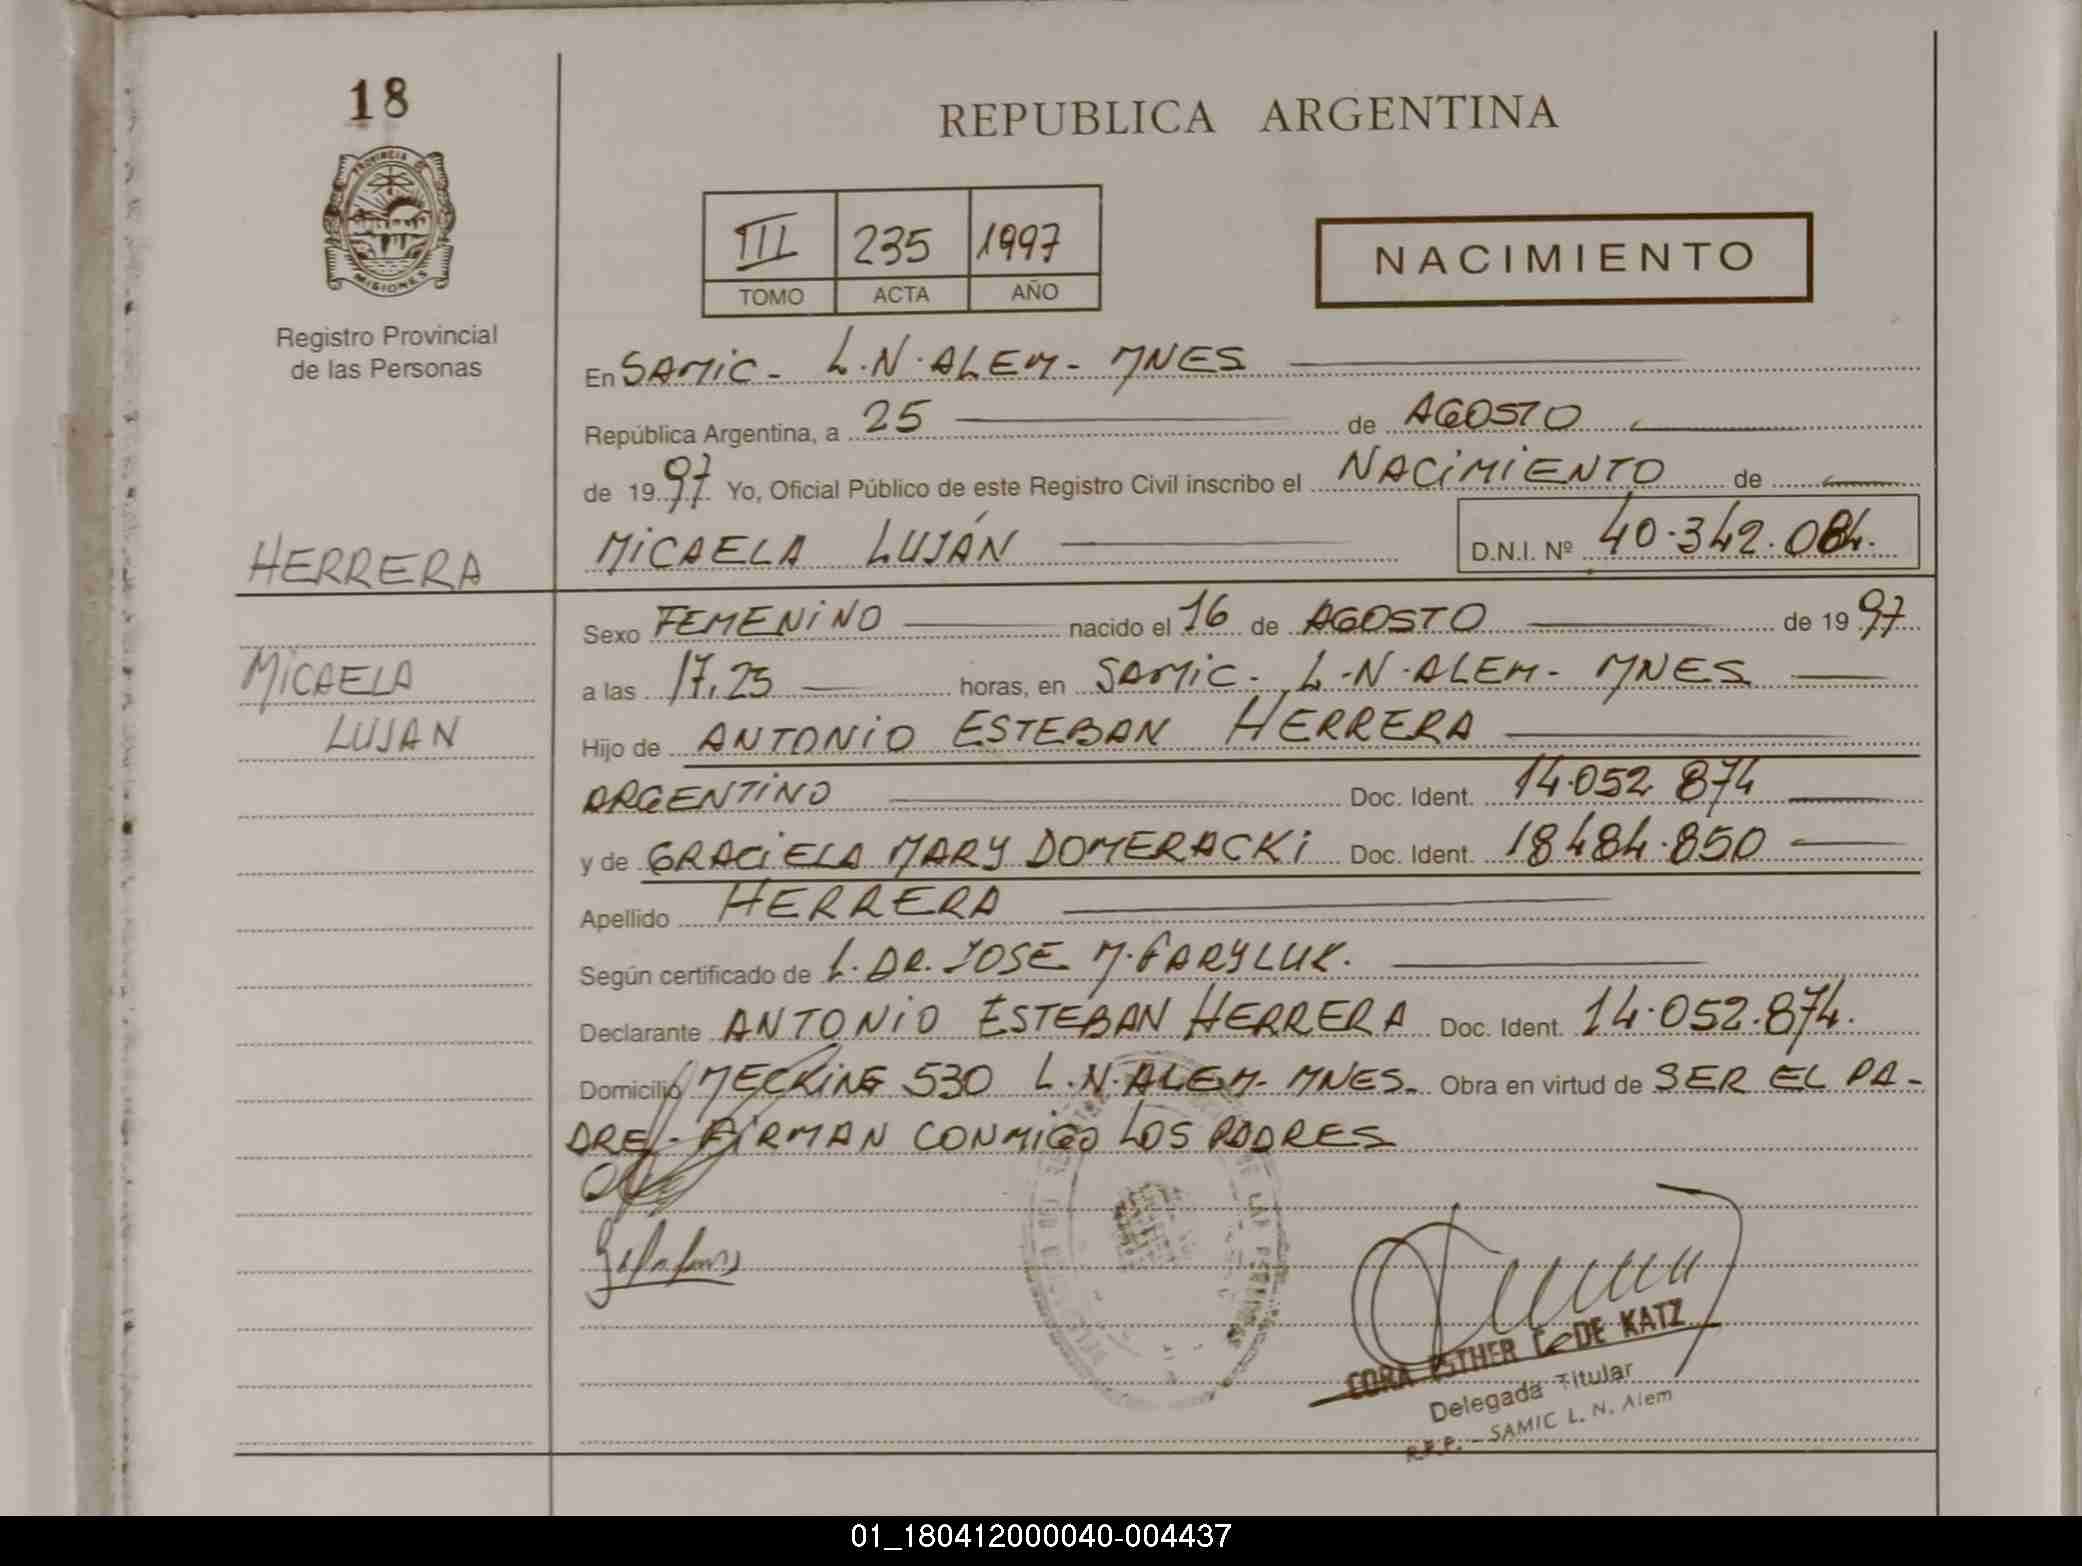 18
REPUBLICA ARGENTINA
PROVINCIA DE
MISIONES
III 235 1997
TOMO ACTA AÑO
NACIMIENTO
Registro Provincial
de las Personas
En SAMIC - L.N. ALEM - MNES
República Argentina, a 25 de AGOSTO
de 1997 Yo, Oficial Público de este Registro Civil inscribo el NACIMIENTO de
HERRERA
MICAELA LUJÁN D.N.I. Nº 40.342.084.
Sexo FEMENINO nacido el 16 de AGOSTO de 1997
MICAELA
a las 17,25 horas, en SAMIC - L.N. ALEM - MNES
LUJAN
Hijo de ANTONIO ESTEBAN HERRERA
ARGENTINO Doc. Ident. 14.052 874
y de GRACIELA MARY DOMERACKI Doc. Ident. 18484.850
Apellido HERRERA
Según certificado de L. DR. JOSE M. FARYLUK.
Declarante ANTONIO ESTEBAN HERRERA Doc. Ident. 14.052.874.
Domicilio MECKING 530 L.N. ALEM - MNES. Obra en virtud de SER EL PA-
DRE - FIRMAN CONMIGO LOS PADRES
CORA ESTHER DE KATZ
Delegada Titular
R.P.P. - SAMIC L. N. Alem
01_180412000040-004437